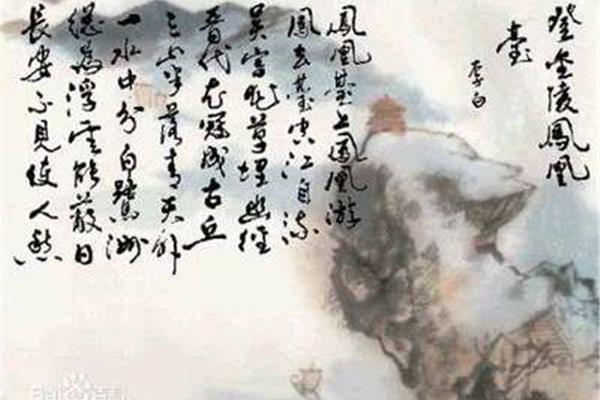 登金陵鳳凰
臺
李白
鳳凰臺上鳳凰游
鳳去臺空江自流
吳宮花草埋幽徑
晉代衣冠成古丘
三山半落青天外
一水中分白鷺洲
總為浮雲能蔽日
長安不見使人愁